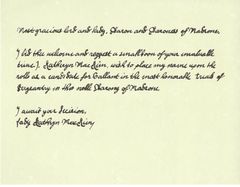 Most gracious lord and lady, Sharon and Sharoness of Madrone.
I bid thee welcome and request a small boon of your invaluable
time. I, Kathryn MacAlin, wish to place my name upon the
rolls as a candidate for Gallant in the most honorable rank of
Sergeantry in this noble Sharony of Madrone
I await your decision,
Lady Kathryn MacAlin